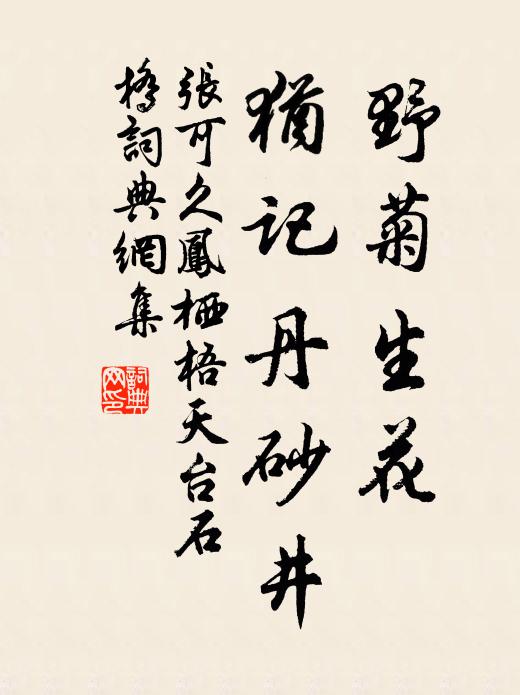 野菊生花
猶記丹砂井
張可久鳳栖梧天台石
橋詞典網集
詞典網印